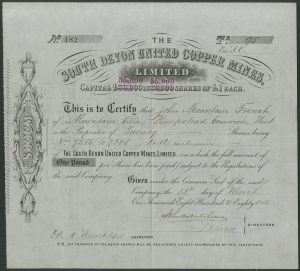 No. 182
THE
95
SOUTH DEVON UNITED COPPER MINES,
LIMITED
35,000 35,000
CAPITAL SHARES OF £1 EACH.
This is to Certify that John Mountain French
of Mountain Villa, Plumpstead Common, Kent
is the Proprietor of Twenty Shares being
Nos. 7286 to 7305 both inclusive
THE SOUTH DEVON UNITED COPPER MINES, LIMITED, on which the full amount of
One Pound per Share has been paid subject to the Regulations of
the said Company.
Given under the Common Seal of the said
Company, the day of March
One Thousand Eight Hundred & Eighty
DIRECTORS.
SECRETARY.
N.B. NO TRANSFER OF THE ABOVE SHARES WILL BE REGISTERED UNLESS ACCOMPANIED BY THIS CERTIFICATE.